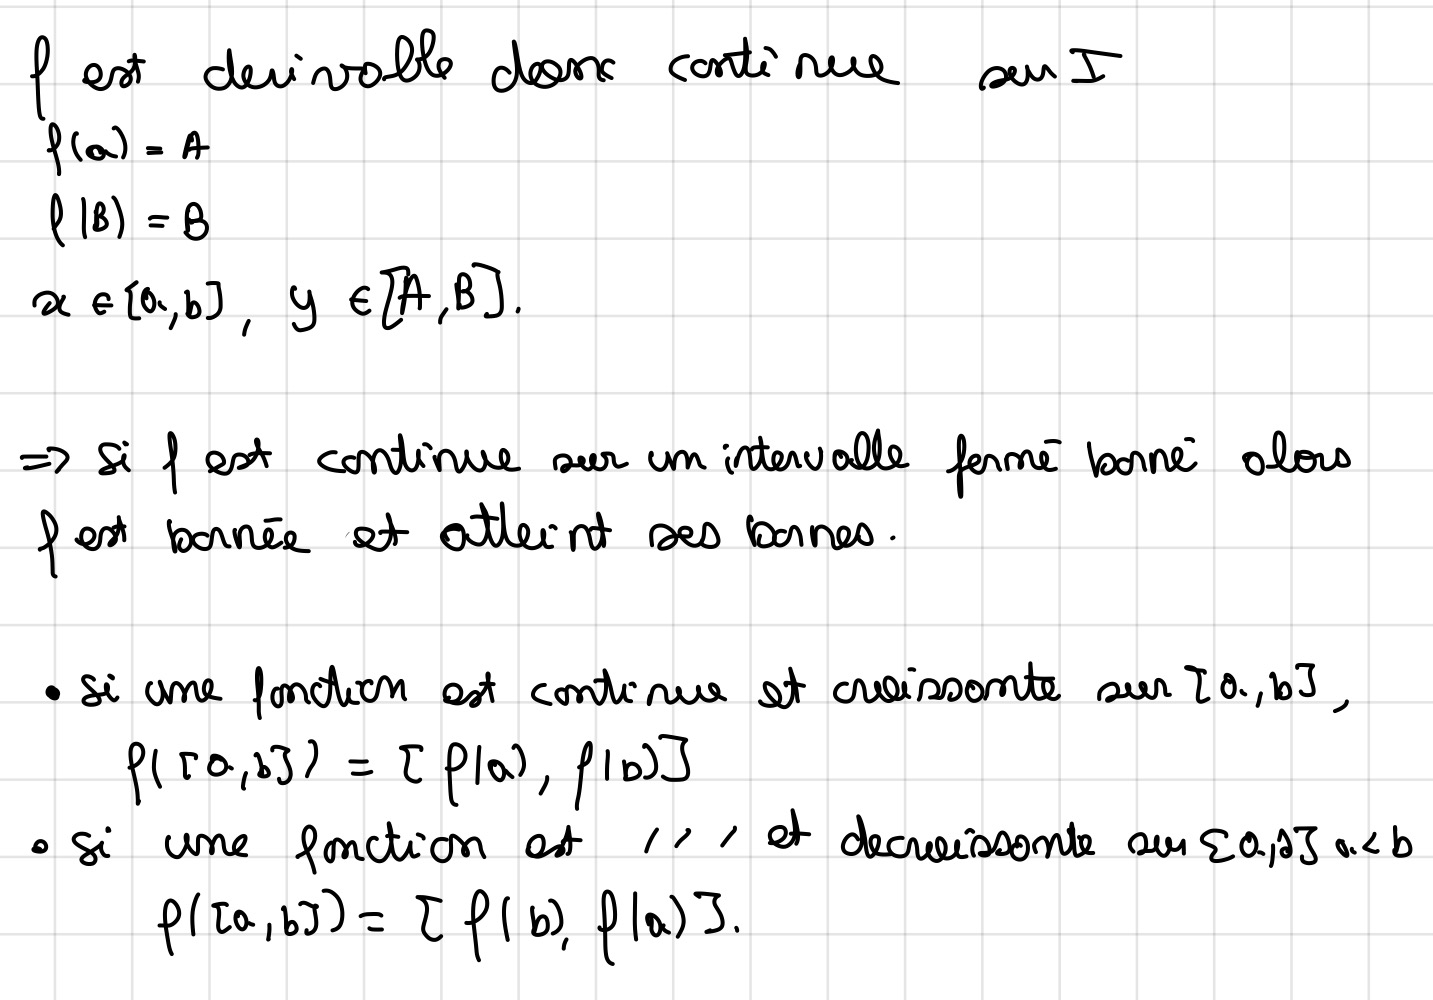 f est derivable donc continue sur I
f(a) = A
f(B) = B
x ∈ [a,b], y ∈ [A,B].
=> si f est continue sur un intervalle fermé borné alors
f est bornée et atteint ses bornes.
• si une fonction est continue et croissante sur [a,b],
f([a,b]) = [f(a), f(b)]
• si une fonction est / / / et decroissante sur [a,b] a<b
f([a,b]) = [f(b), f(a)].